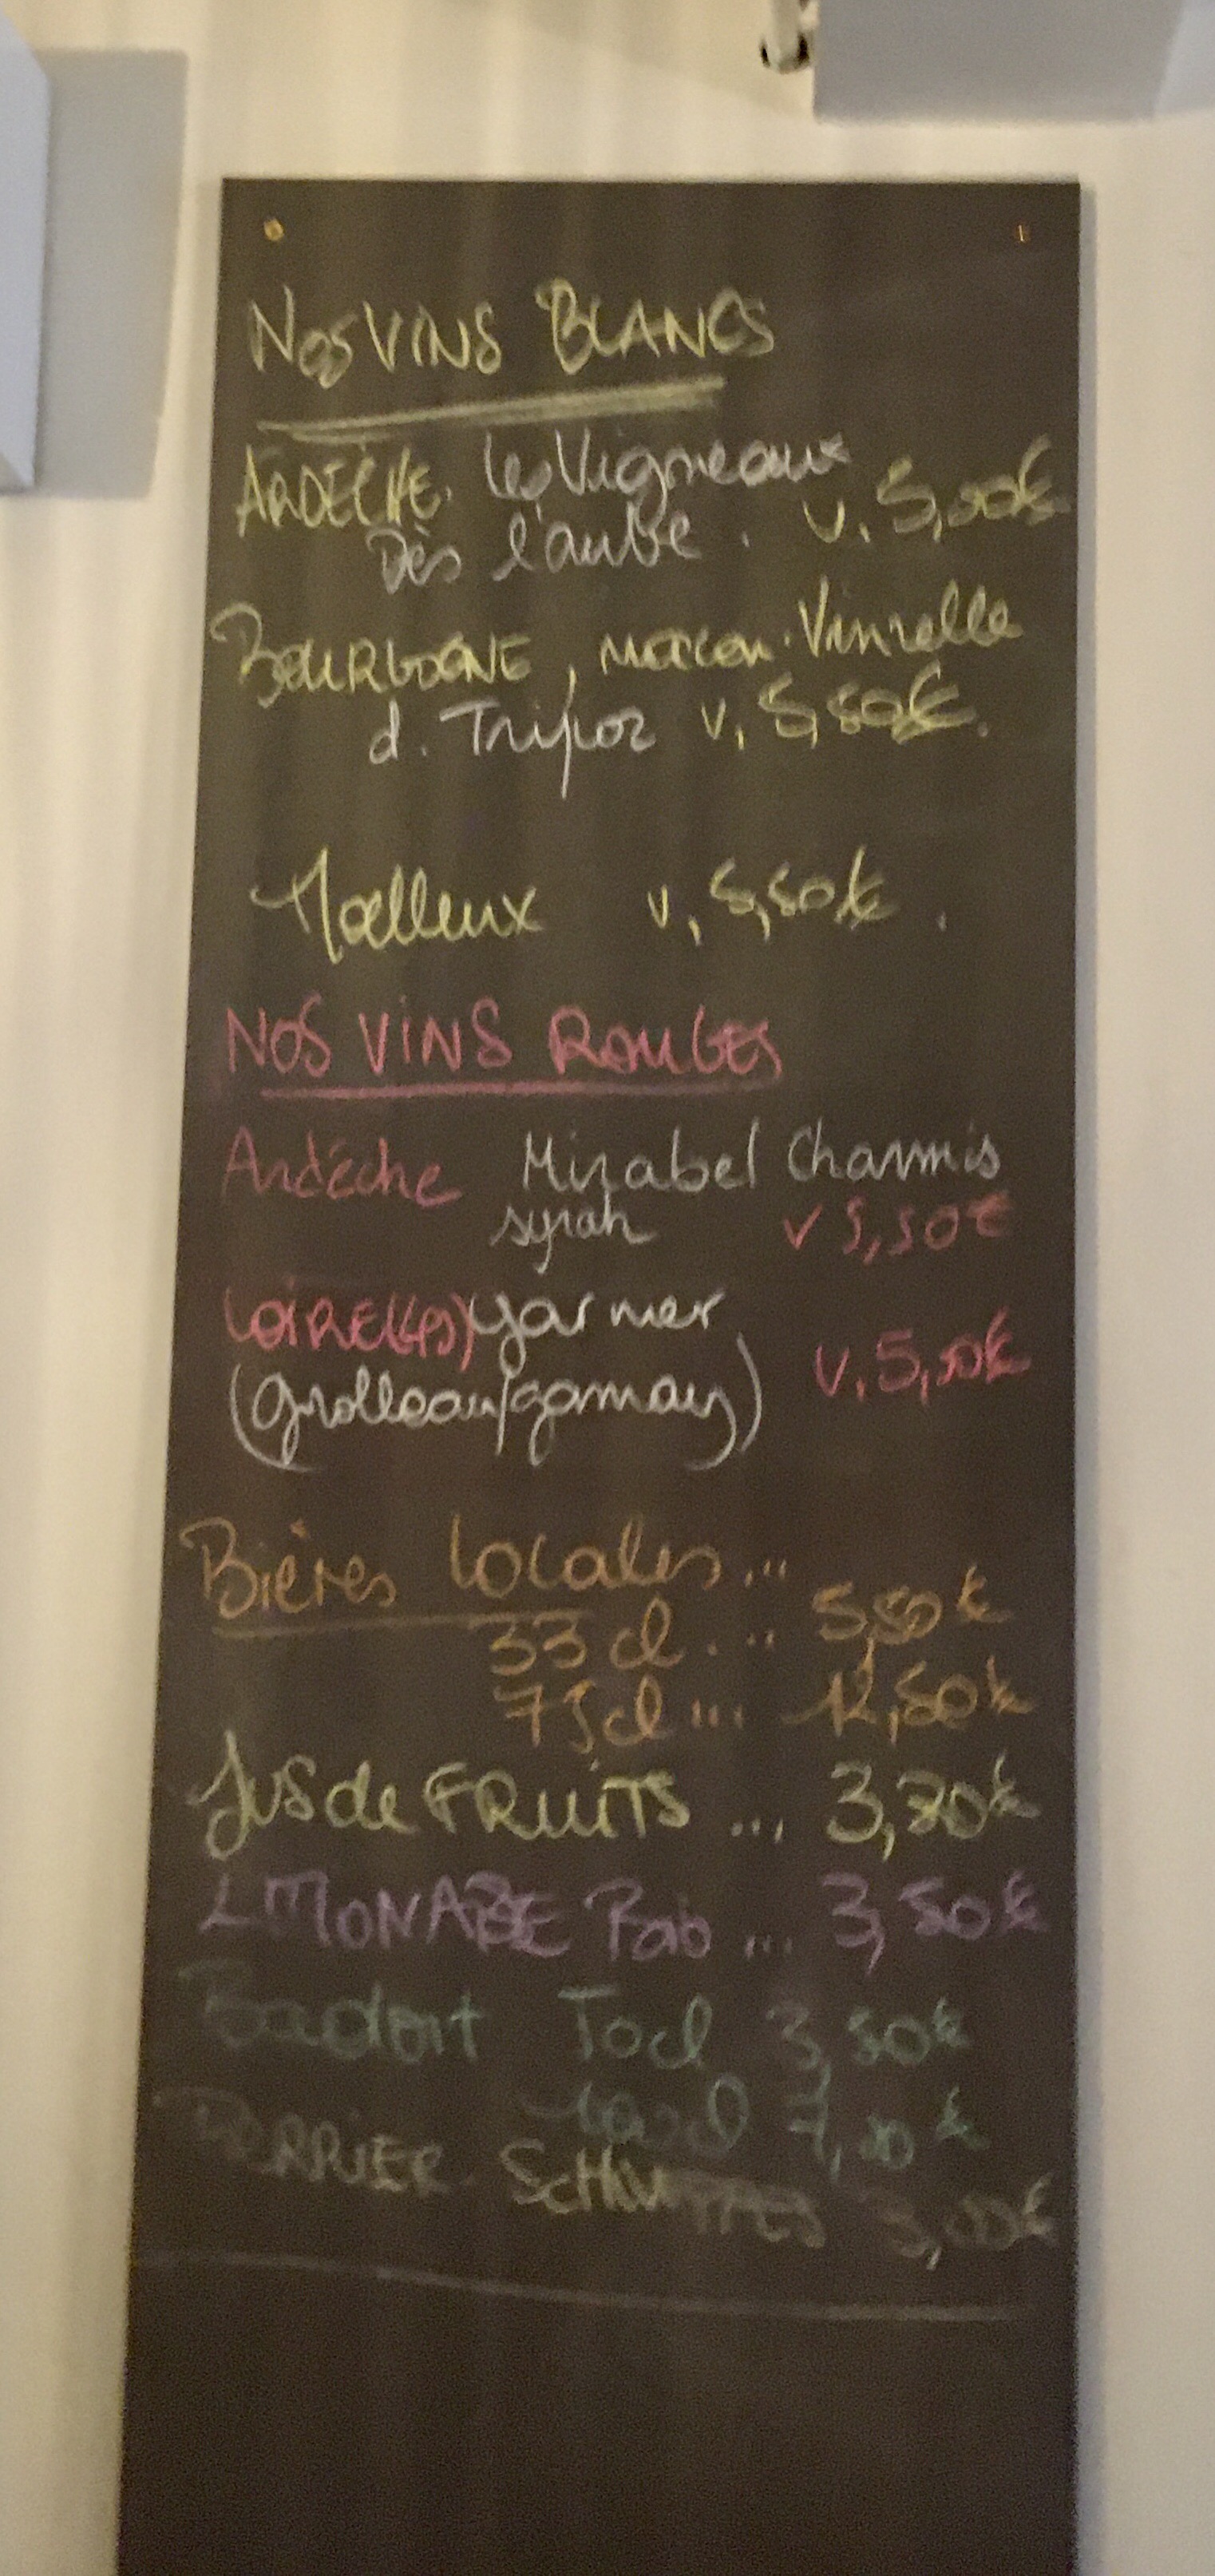 NOS VINS BLANCS
ARDÈCHE. Les Vigneaux
Dès l'aube. v. 5,00€
BOURGOGNE, macon-Vinzelle
d. Tripoz v. 5,50€.
Moelleux v. 5,50€.
NOS VINS ROUGES
Ardèche Mirabel Charmis
syrah v 5,50€
LOIRE
(grolleau/gamay) v. 5,00€
Bières Locales...
33 cl... 5,50€
75cl... 12,50€
Jus de FRUITS ... 3,30€
LIMONADE ... 3,50€
Badoit 3,50€
PERRIER SCHWEPPES 3,00€